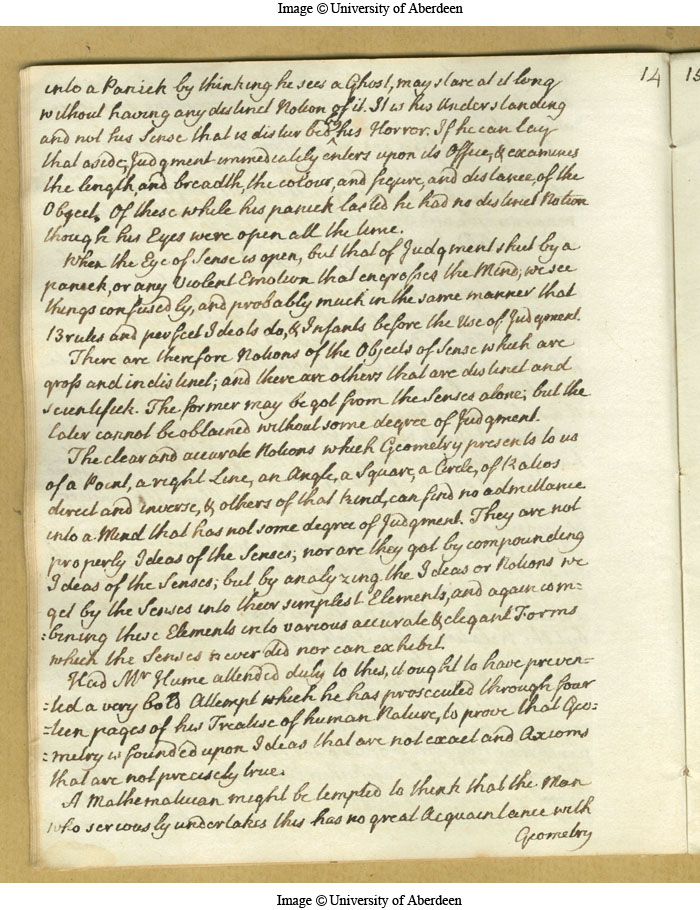 Image © University of Aberdeen
14
15
into a Panick by thinking he sees a Ghost, may stare at it long
without having any distinct Notion of it. It is his Understanding
and not his Sense that is disturbed by his Horror. If he can lay
that aside, Judgment immediately enters upon its Office, & examines
the length, and breadth, the colour, and figure, and distance, of the
Object. Of these while his panick lasted he had no distinct Notion
though his Eyes were open all the time.
When the Eye of Sense is open, but that of Judgment shut by a
panick, or any Violent Emotion that engrosses the Mind, we see
things confusedly, and probably much in the same manner that
Brutes and perfect Ideots do, & Infants before the Use of Judgment.
There are therefore Notions of the Objects of Sense which are
gross and indistinct; and there are others that are distinct and
scientifick. The former may be got from the Senses alone; but the
later cannot be obtained without some degree of Judgment.
The clear and accurate Notions which Geometry presents to us
of a Point, a right Line, an Angle, a Square, a Circle, of Ratios
direct and inverse, & others of that kind, can find no admittance
into a Mind that has not some degree of Judgment. They are not
properly Ideas of the Senses; nor are they got by compounding
Ideas of the Senses; but by analyzing the Ideas or Notions we
get by the Senses into their simplest Elements, and again com=
=bining these Elements into various accurate & elegant Forms
which the Senses never did nor can exhibit.
Had Mr Hume attended duly to this, it ought to have preven=
=ted a very bold Attempt which he has prosecuted through four
=teen pages of his Treatise of human Nature, to prove that Geo=
=metry is founded upon Ideas that are not exact and Axioms
that are not precisely true.
A Mathematician might be tempted to think that the Man
who seriously undertakes this has no great Acquaintance with
Geometry
Image © University of Aberdeen